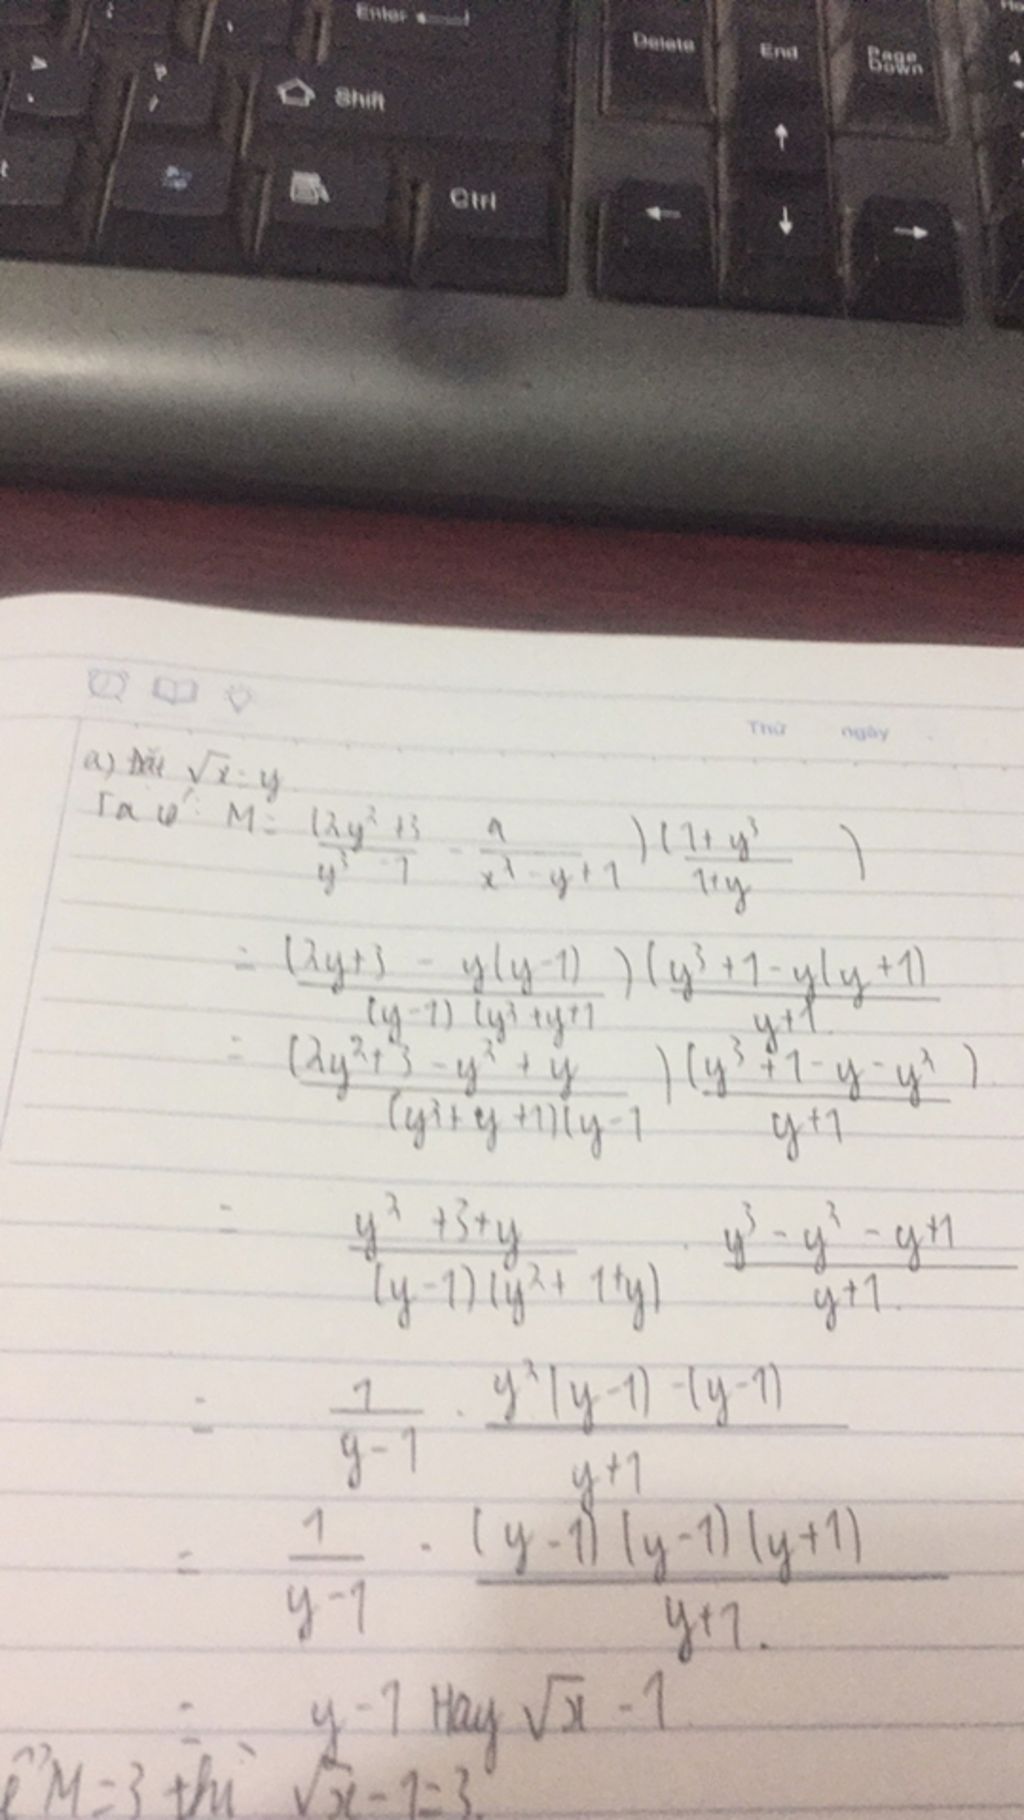 Enter
Delete End Page Down
Shift
Ctrl
Thứ ngày
a) Đặt √x = y
Ta có: M = (2y² + 3 / y³ - 1 - / x² - y + 1) (1 + y³ / 1 + y)
= (2y + 3 - y(y - 1) / (y - 1) (y² + y + 1) (y³ + 1 - y(y + 1) / y + 1
= (2y² + 3 - y² + y / (y² + y + 1)(y - 1) (y³ + 1 - y - y² / y + 1)
= y² + 3 + y / (y - 1)(y² + 1 + y) . y³ - y² - y + 1 / y + 1.
= 1 / y - 1 . y²(y - 1) - (y - 1) / y + 1
= 1 / y - 1 . (y - 1) (y - 1) (y + 1) / y + 1.
= y - 1 Hay √x - 1
M = 3 thì √x - 1 = 3.